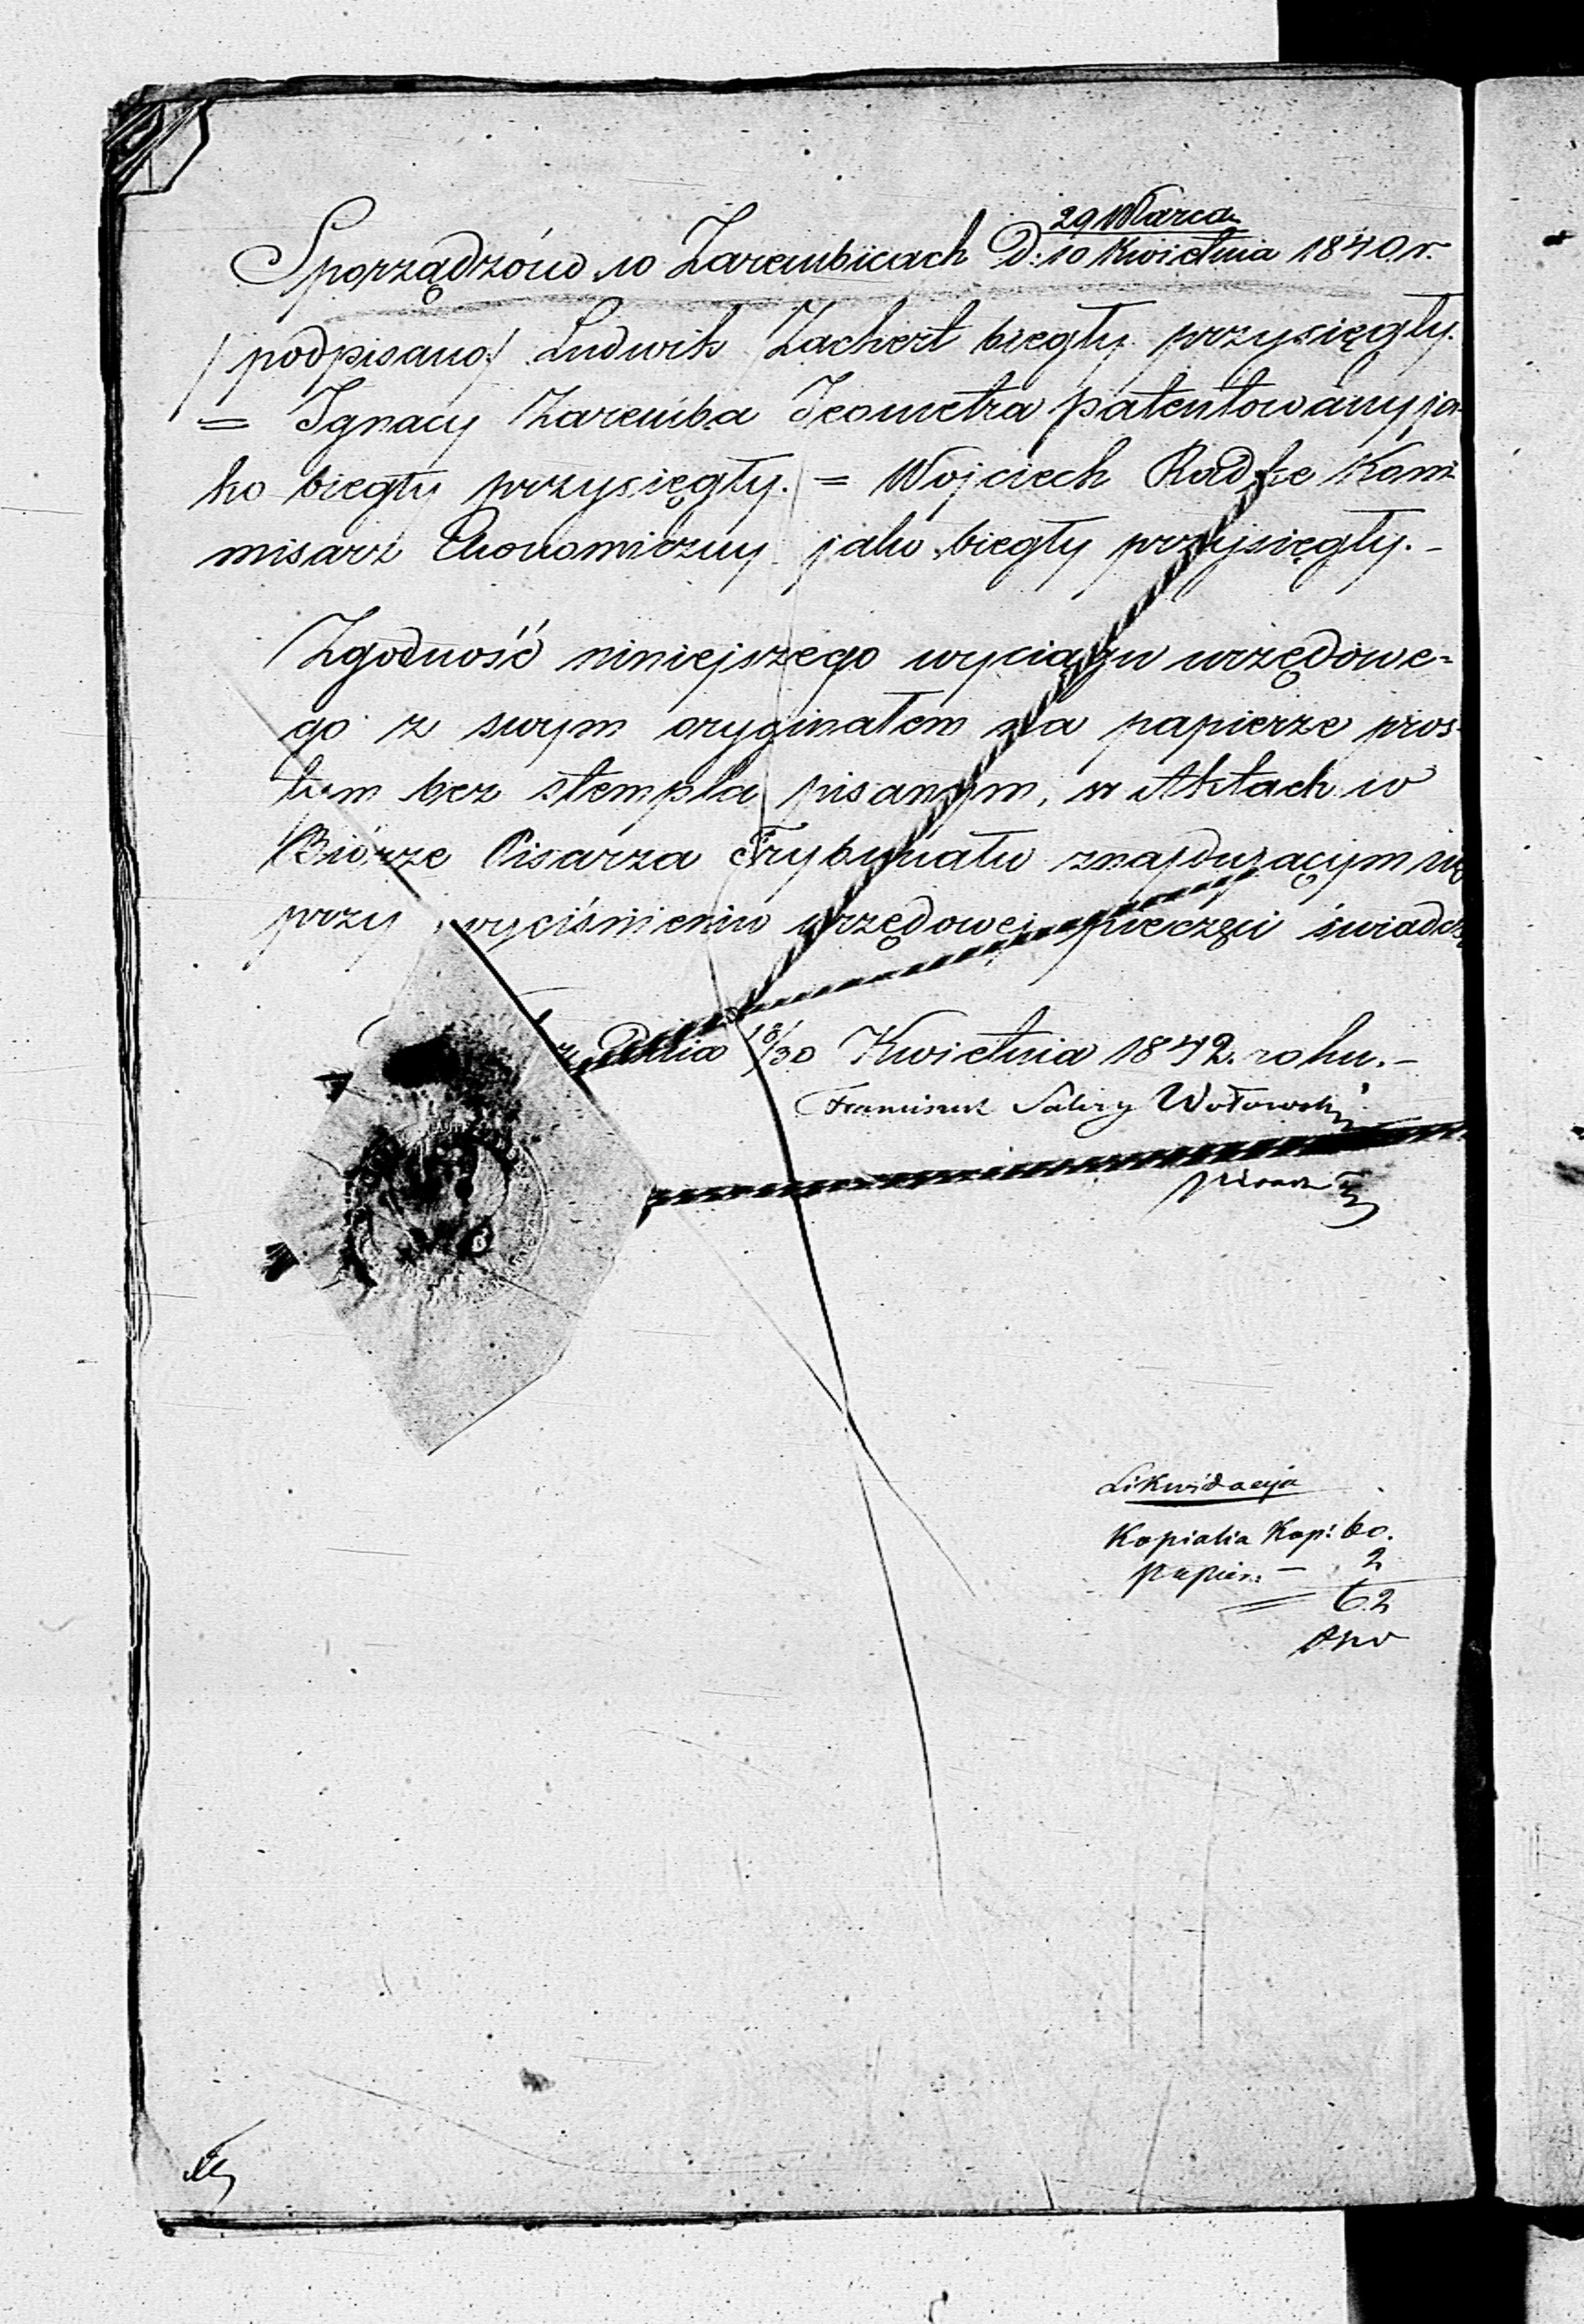 29 Marca
Sporządzóno w Zarembicach D: 10 Kwietnia 1840 r.
/podpisano/ Ludwik Zachert biegły przysięgły.
= Ignacy Zaremba Jeometra patentowany ja-
ko biegły przysięgły. = Wojciech Radke Kom-
misarz Ekonomiczny jako biegły przysięgły. -
Zgodność niniejszego wyciągu urzędowe-
go z swym oryginałem na papierze pros-
tem bez stempla pisanym, w Aktach w
Biórze Pisarza Trybunału znajdującym się
przy wyciśnieniu urzędowej pieczęci świadczę
Dnia 18/30 Kwietnia 1842. roku. -
Franciszek Salezy Wołowski
Pisarz
Likwidacyja
Kopialia Kop: 60.
papier: - 2
= 62